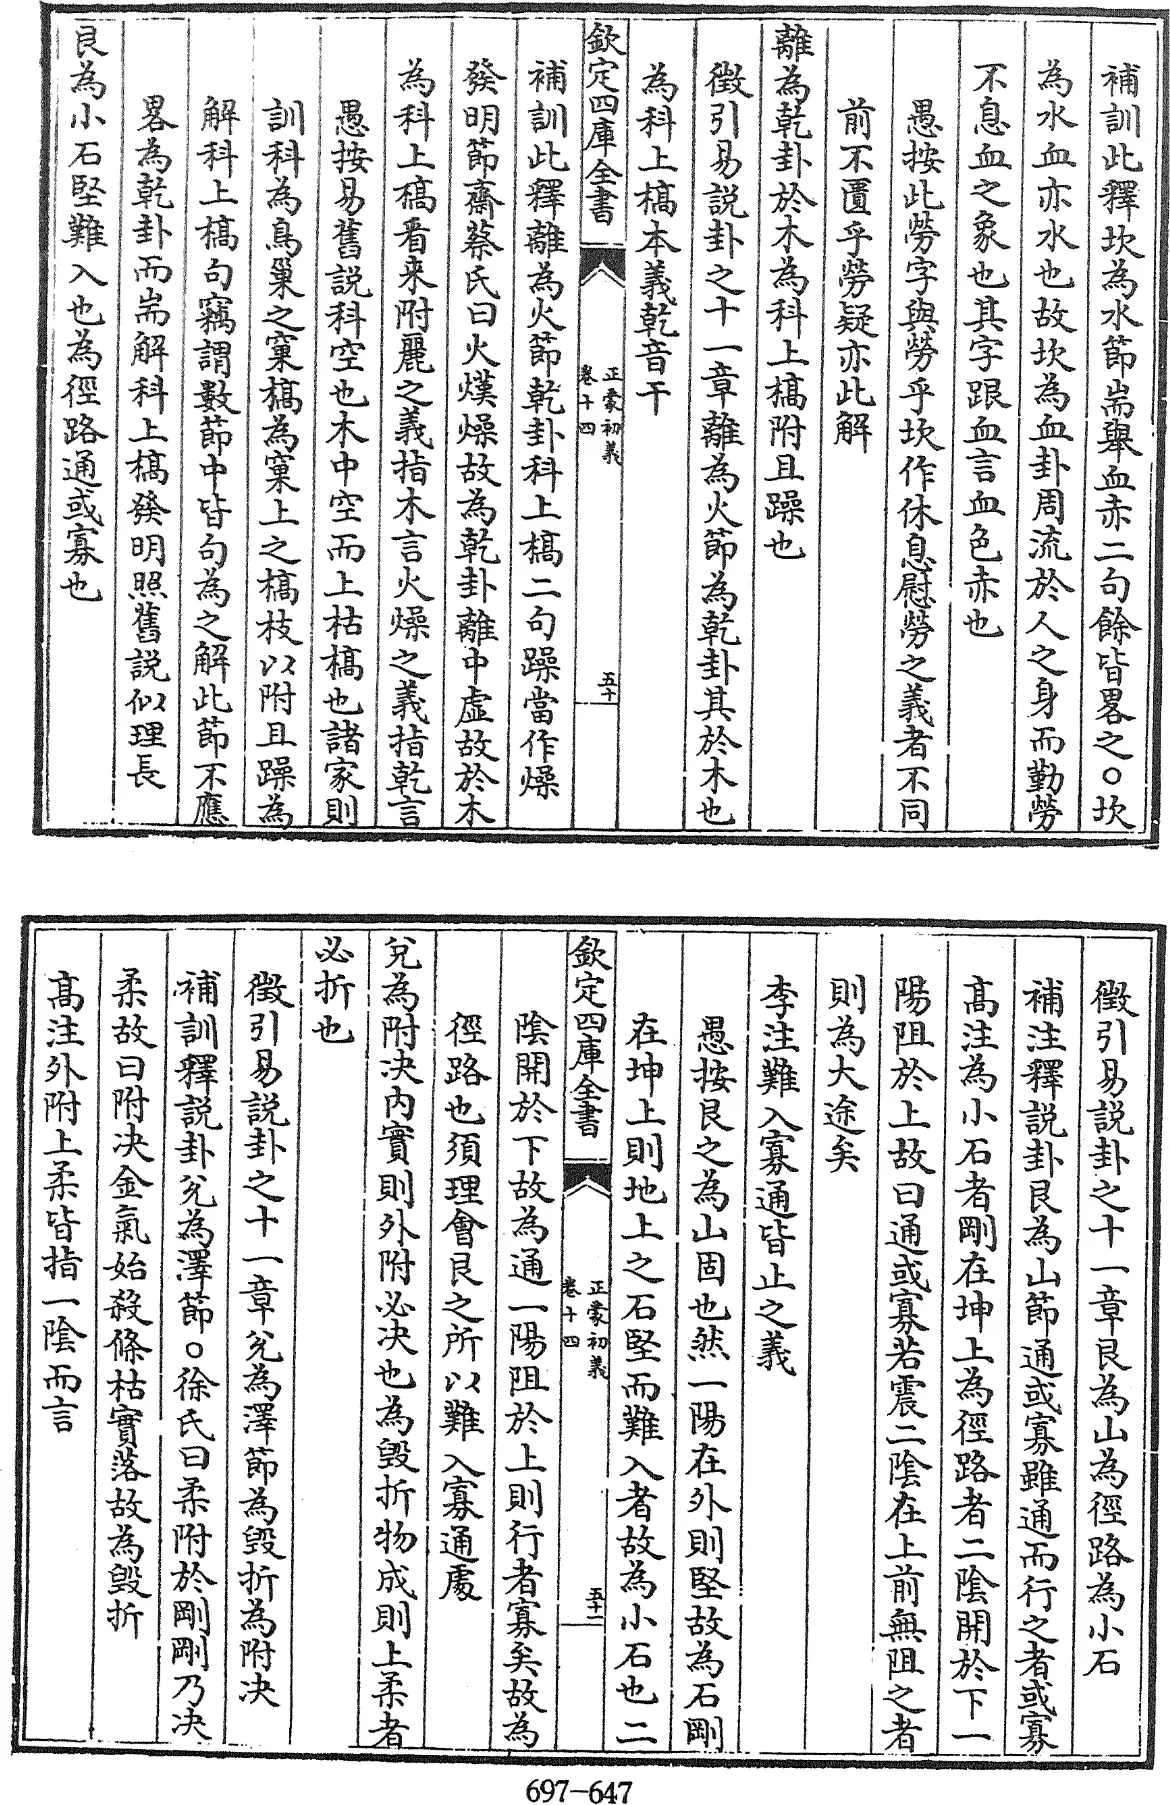 補訓此釋坎為水節耑舉血赤二句餘皆畧之○坎
為水血亦水也故坎為血卦周流於人之身而勤勞
不息血之象也其字跟血言血色赤也
愚按此勞字與勞乎坎作休息慰勞之義者不同
前不匱乎勞疑亦此解
離為乾卦於木為科上槁附且躁也
徵引易説卦之十一章離為火節為乾卦其於木也
為科上槁本義乾音干
欽定四庫全書
正蒙初義
卷十四
五十
補訓此釋離為火節乾卦科上槁二句躁當作燥
發明節齋蔡氏曰火熯燥故為乾卦離中虛故於木
為科上槁看來附麗之義指木言火燥之義指乾言
愚按易舊説科空也木中空而上枯槁也諸家則
訓科為鳥巢之窠槁為窠上之槁枝以附且躁為
解科上槁句竊謂數節中皆句為之解此節不應
畧為乾卦而耑解科上槁發明照舊説似理長
艮為小石堅難入也為徑路通或寡也
徵引易説卦之十一章艮為山為徑路為小石
補注釋説卦艮為山節通或寡雖通而行之者或寡
高注為小石者剛在坤上為徑路者二陰開於下一
陽阻於上故曰通或寡若震二陰在上前無阻之者
則為大途矣
李注難入寡通皆止之義
愚按艮之為山固也然一陽在外則堅故為石剛
在坤上則地上之石堅而難入者故為小石也二
欽定四庫全書
正蒙初義
卷十四
五十一
陰開於下故為通一陽阻於上則行者寡矣故為
徑路也須理會艮之所以難入寡通處
兌為附決內實則外附必決也為毀折物成則上柔者
必折也
徵引易説卦之十一章兌為澤節為毀折為附决
補訓釋説卦兌為澤節○徐氏曰柔附於剛剛乃决
柔故曰附决金氣始殺條枯實落故為毀折
高注外附上柔皆指一陰而言
697-647